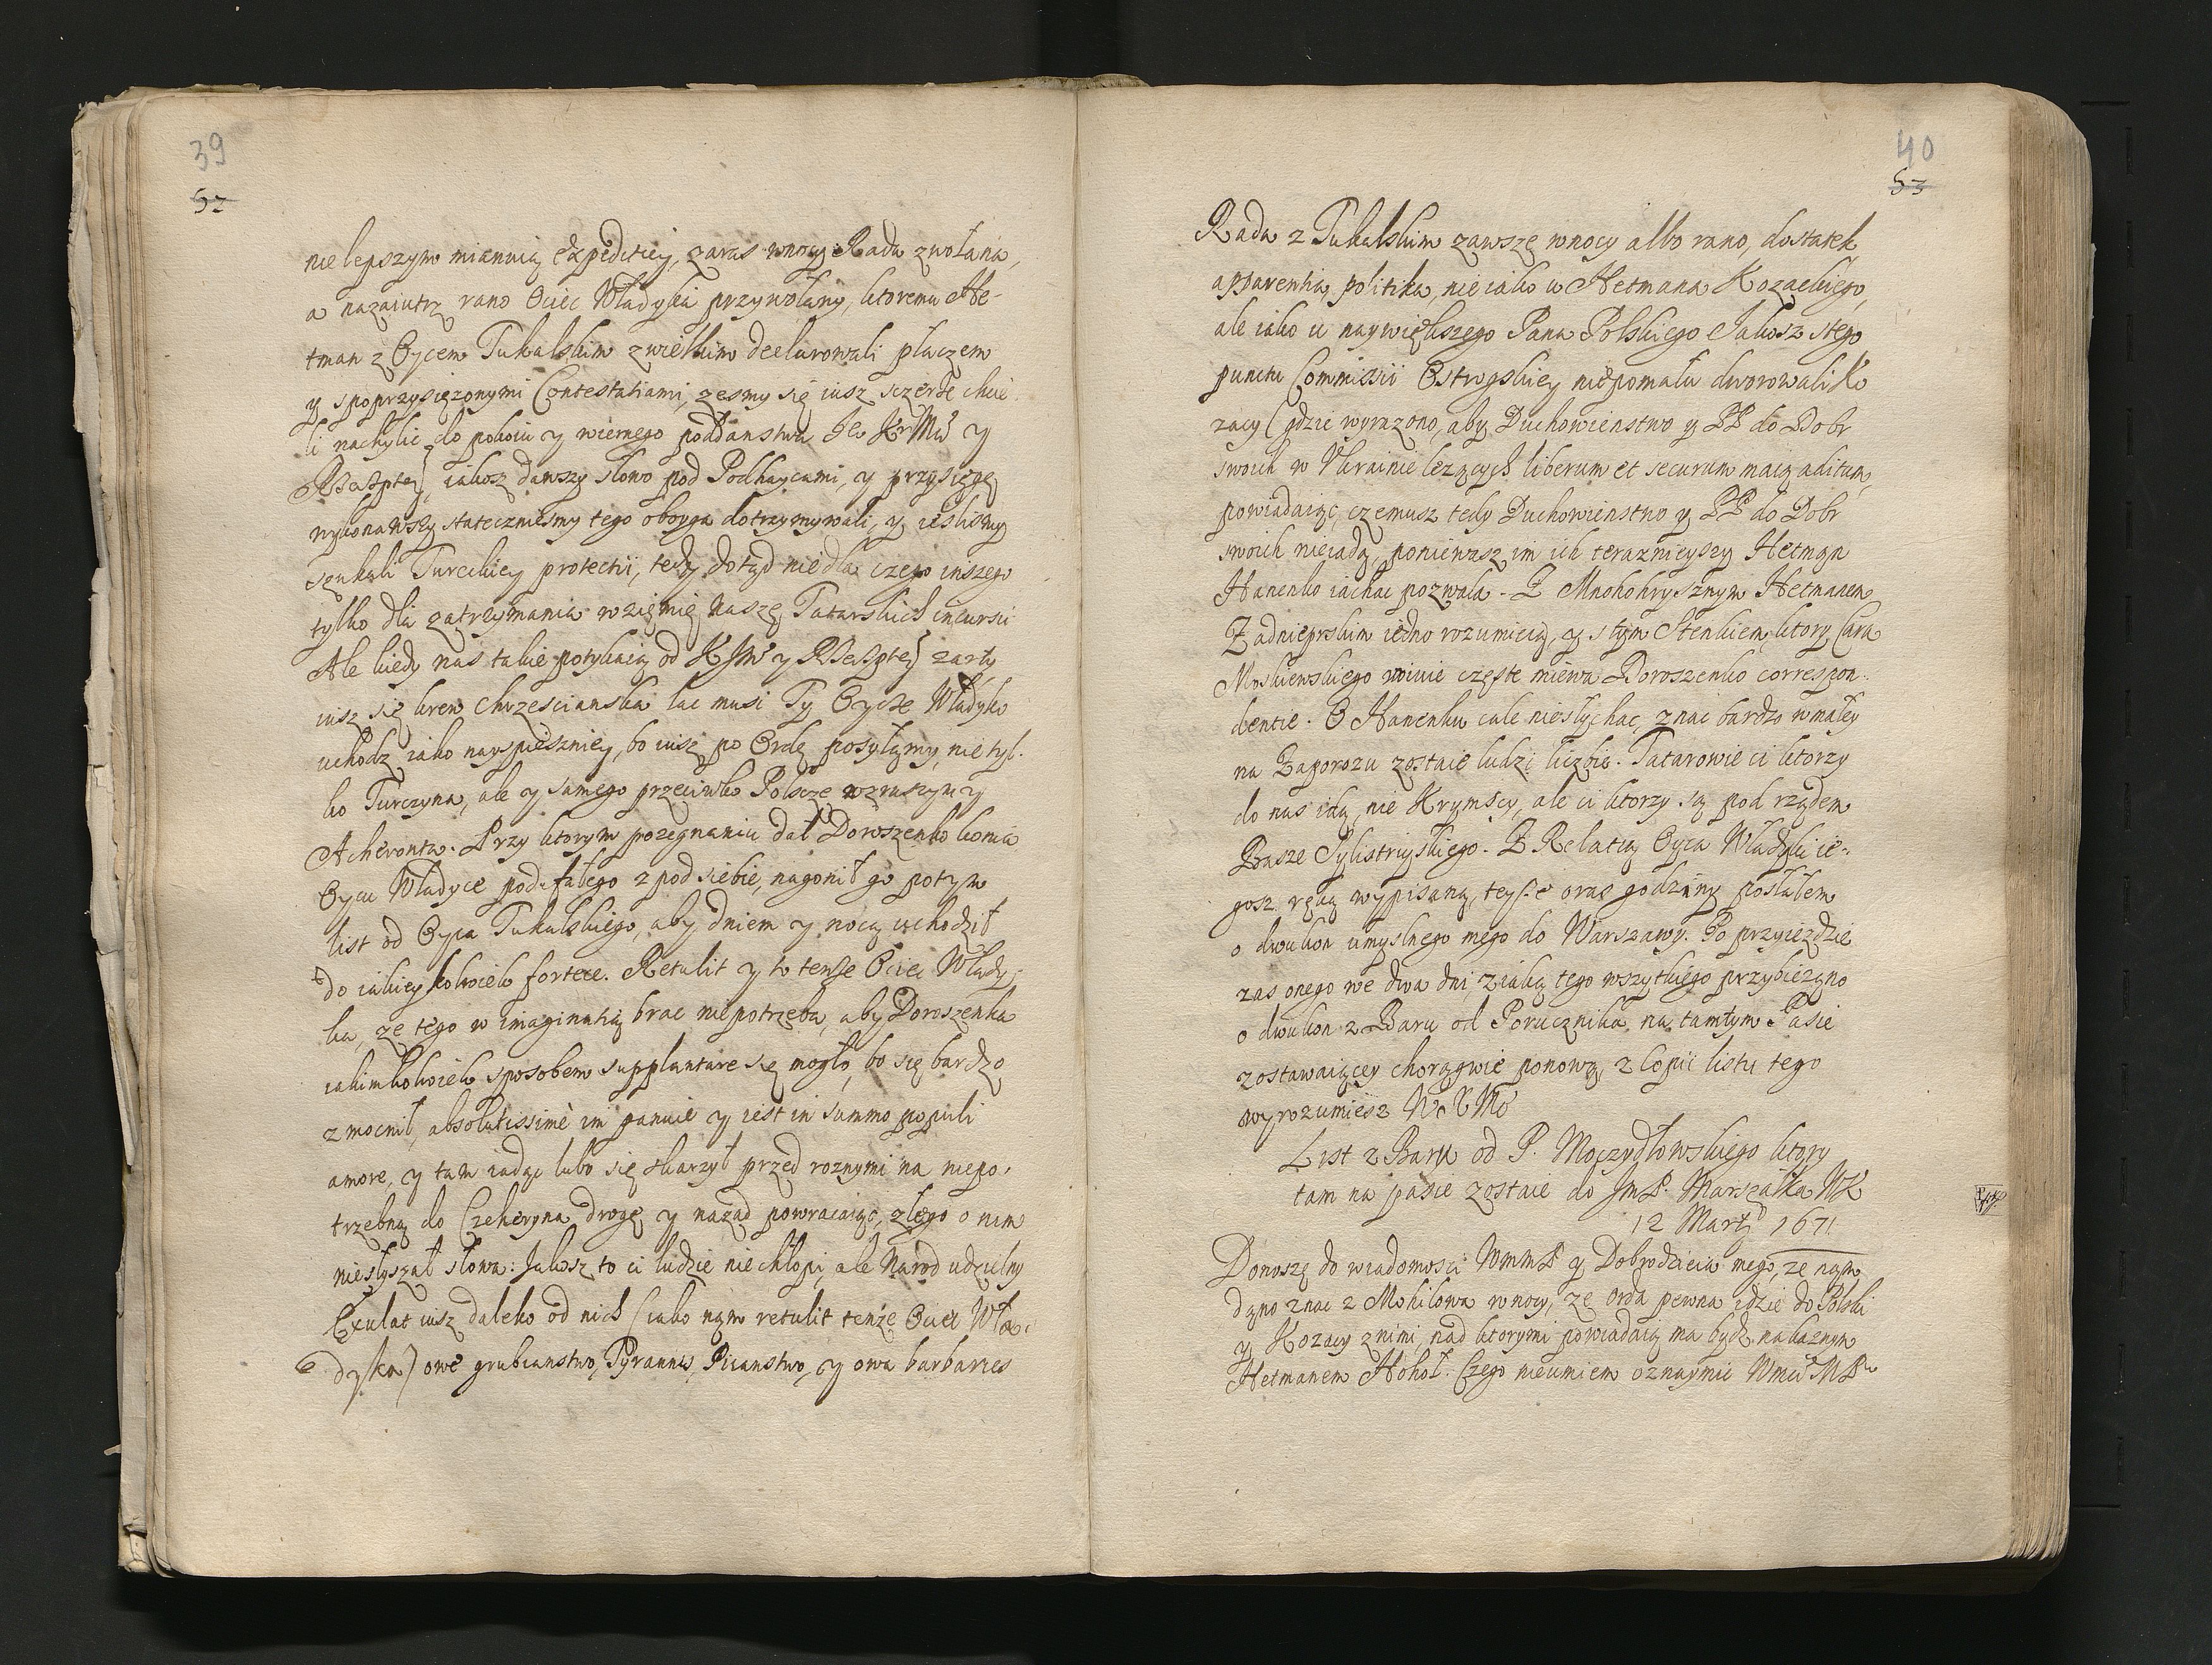 39
52
nielepszym mianuią expeditiey, zaras wnocy Rada zwołana,
a nazaiutrz rano Ociec Władyka przywołany, ktoremu He-
tman z Oycem Tukalskim zwielkim declarowali płaczem
y zpoprzysięzonymi Contestatiami, zesmy się iusz sczerze chcie
li nachylic do pokoiu y wiernego poddanstwa Je Kr Mci y
Rzeczptey, iakosz dawszy słowo pod Podhaycami, y przysięgę
wykonawszy stateczniesmy tego oboyga dotrzymywali, y iesliśmy
szukali Tureckiey protectii, tedy dotyd niedla czego inszego
tylko dla zatrzymania wziemię naszę Tatarskich incursii
Ale kiedy nas takie potykaią od KJMci y Rzeczptey zarty
iusz się krew chrzescianska lac musi Ty Oycze Władyko
uchodz iako nayspieszniey, bo iusz po Ordę posyłamy, nietyl-
ko Turczyna, ale y samego przeciwko Polscze wzruszymy
Acheronta. Przy ktorym pozegnaniu dał Doroszenko konia
Oycu Władyce podufałego zpod siebie, nagonił go potym
list od Oyca Tukalskiego, aby dniem y nocą uchodził
do iakieykolwiek fortece. Retulit y to tenże Ociec Włady-
ka, ze tego w imaginatią brac niepotrzeba, aby Doroszenka
iakimkolwiek sposobem supplantare się mogło, bo się bardzo
zmocnił, absolutissimè im panuie y iest in summo populi
amore, y tam iadąc lubo się skarzył przed roznymi na niepo-
trzebną do Czeheryna drogę y nazad powracaiąc, złego o nim
niesłyszał słowa: Jakosz to ci ludzie niechłopi, ale Narod udzielny
Exulat iusz daleko od nich (iako nam retulit tenże Ociec Wła-
dyka) owe grubianstwo, Tyrannis, Piianstwo, y owa barbaries
40
53
Rada z Tukalskim zawsze wnocy albo rano, dostatek
apparentia, politika, nieiako u Hetmana Kozackiego,
ale iako u naywiększego Pana Polskiego Jakosz stego
punctu Commissii Ostrogskiey niepomału dworowali Ko
zacy (gdzie wyrazono, aby Duchowienstwo y PP do Dobr
swoich w Ukrainie lezących liberum et securum maią aditum,
powiadaiąc, czemusz tedy Duchowienstwo y PP do Dobr
swoich nieiadą, poniewasz im ich teraznieyszy Hetman
Hanenko iachac pozwala. Z Mnohohrysznym Hetmanem
Zadnieprskim iedno rozumieią, y stym Stenkiem, ktory Cara
Moskiewskiego woiuie częste miewa Doroszenko correspon-
dentie. O Hanenku cale niesłychac, znac bardzo wmałey
na Zaporozu zostaie ludzi liczbie. Tatarowie ci ktorzy
do nas idą, nie Krymscy, ale ci ktorzy są pod rządem
Basze Sylistriyskiego. Z Relatią Oyca Władyki ie-
gosz ręką wypisaną, teysze oraz godziny posłałem
o dwukon umyslnego mego do Warszawy. Po przyieździe
zas onego we dwa dni, ziaką tego wszytkiego przybieząno
o dwukon z Baru od Porucznika, na tamtym Pasie
zostawaiącey chorągwie ponową, z Copii listu tego
wyrozumiesz WXMć
List z Baru od P. Moczydłowskiego ktory
tam na pasie zostaie do JmP. Marszałka WK
12 Martij 1671
Donoszę do wiadomosci WmmP y Dobrodzieia mego, ze nam
dano znac z Mohilowa wnocy, ze Orda pewna idzie do Polski
y Kozacy znimi, nad ktorymi powiadaią ma byd nakaznym
Hetmanem Hohoł. Czego nieumiem oznaymic Wmci MPu